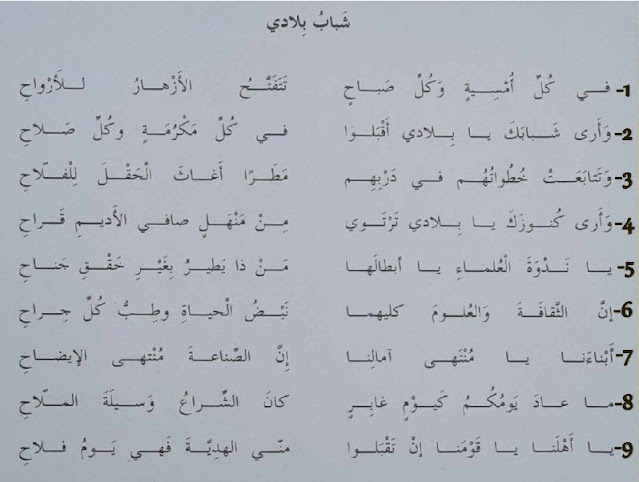 شَبابُ بِلادي
1- فـي كُلِّ أُمْسِيةٍ وَكُلِّ صَبـاحٍ تَتَفَتَّـحُ الأَزْهـارُ لـلأَرْواحِ
2- وَأَرى شَبـابَكَ يـا بِـلادي أَقْبَلـوا فـي كُلِّ مَكْرُمَةٍ وكُلِّ صَـلاحِ
3- وَتَتابَعَـتْ خُطُواتُهُـم فـي دَرْبِهِـم مَطَـرًا أَغـاثَ الْحَقْـلَ لِلْفَـلّاحِ
4- وَأَرى كُنـوزَكَ يـا بِـلادي تَرْتَـوي مِـنْ مَنْهَـلٍ صافي الأَديـمِ قَـراحِ
5- يـا نَـدْوَةَ الْعُلمـاءِ يـا أَبطالَهـا مَـنْ ذا يَطيـرُ بِغَيْـرِ خَفْـقِ جَنـاحِ
6- إنَّ الثَّقافَـةَ وَالْعُلـومَ كليهمـا نَبْـضُ الْحيـاةِ وطِـبُّ كُلِّ جِـراحِ
7- أَبْناءَنـا يـا مُنْتَهـى آمالِنـا إِنَّ الصِّناعـةَ مُنْتهـى الإيضـاحِ
8- مـا عـادَ يَومُكُـمُ كَيَـوْمٍ غابِـرٍ كانَ الشِّراعُ وَسيلَةَ المـلّاحِ
9- يـا أَهْلَنـا يـا قَوْمَنـا إنْ تَقْبَلـوا منّـي الهدِيَّـةَ فَهْـيَ يَـومُ فـلاحِ